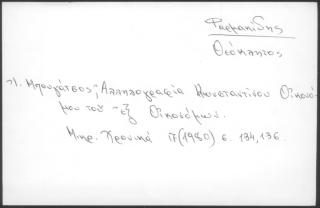 Φαρμακίδης
Θεόκλητος
Ν. Μπουγάτσος, Αλληλογραφία Κωνσταντίνου Οικονό-
μου τοῦ ἐξ Οἰκονόμων.
Μικρ. Χρονικά (1980) σ. 134, 136.